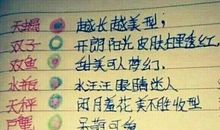 天蝎 越长越美型;
双子 开朗阳光皮肤白里透红.
双鱼 甜美可人梦幻.
水瓶 水汪汪眼睛迷人
天秤 闭月羞花美不胜收型
巨蟹 呆萌可爱